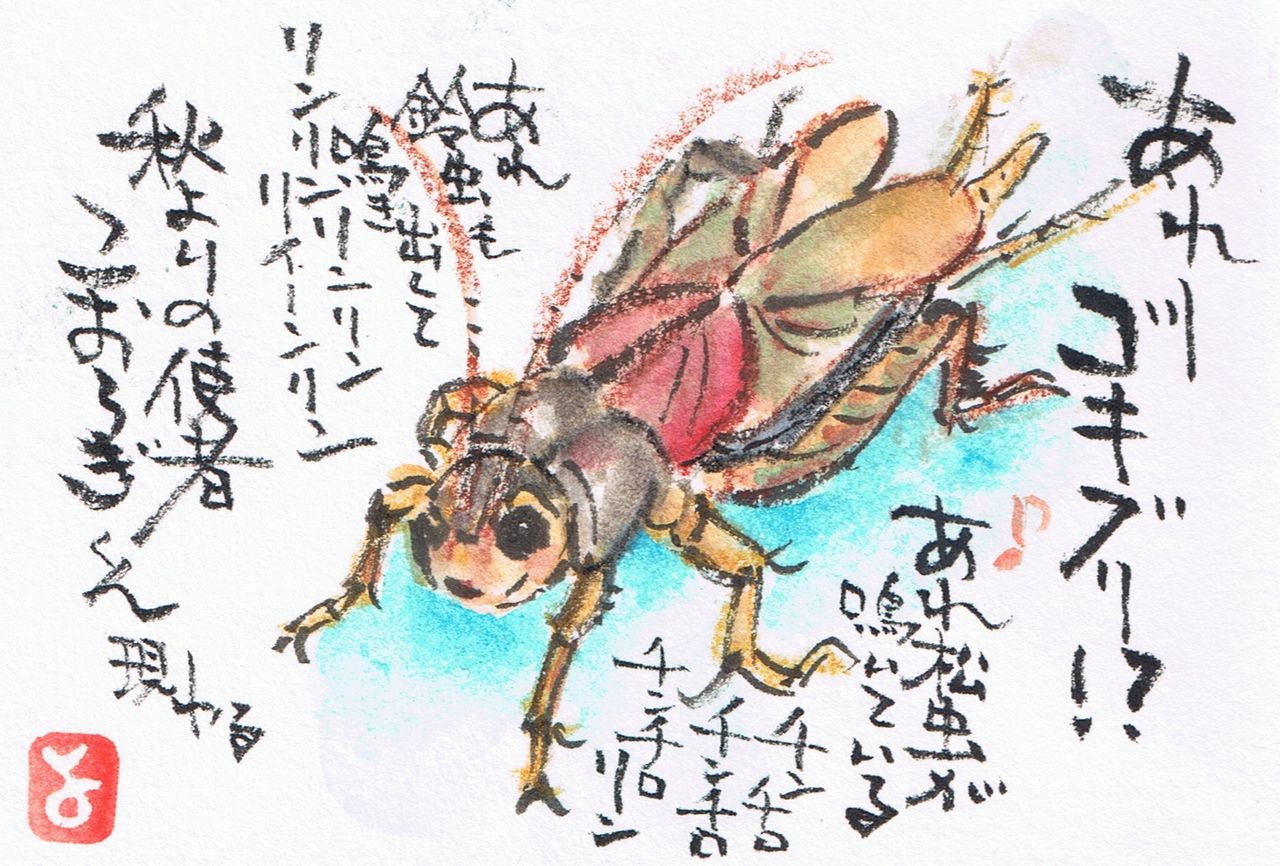 あれ
ゴキブリ!?
♪あれ松虫が
鳴いている
チンチロ
チンチロ
チンチロ
リン
あれ
鈴虫も
鳴き出して
リンリンリンリーンリン
リイーンリン
秋よりの使者
、こおろぎくん現わる
と